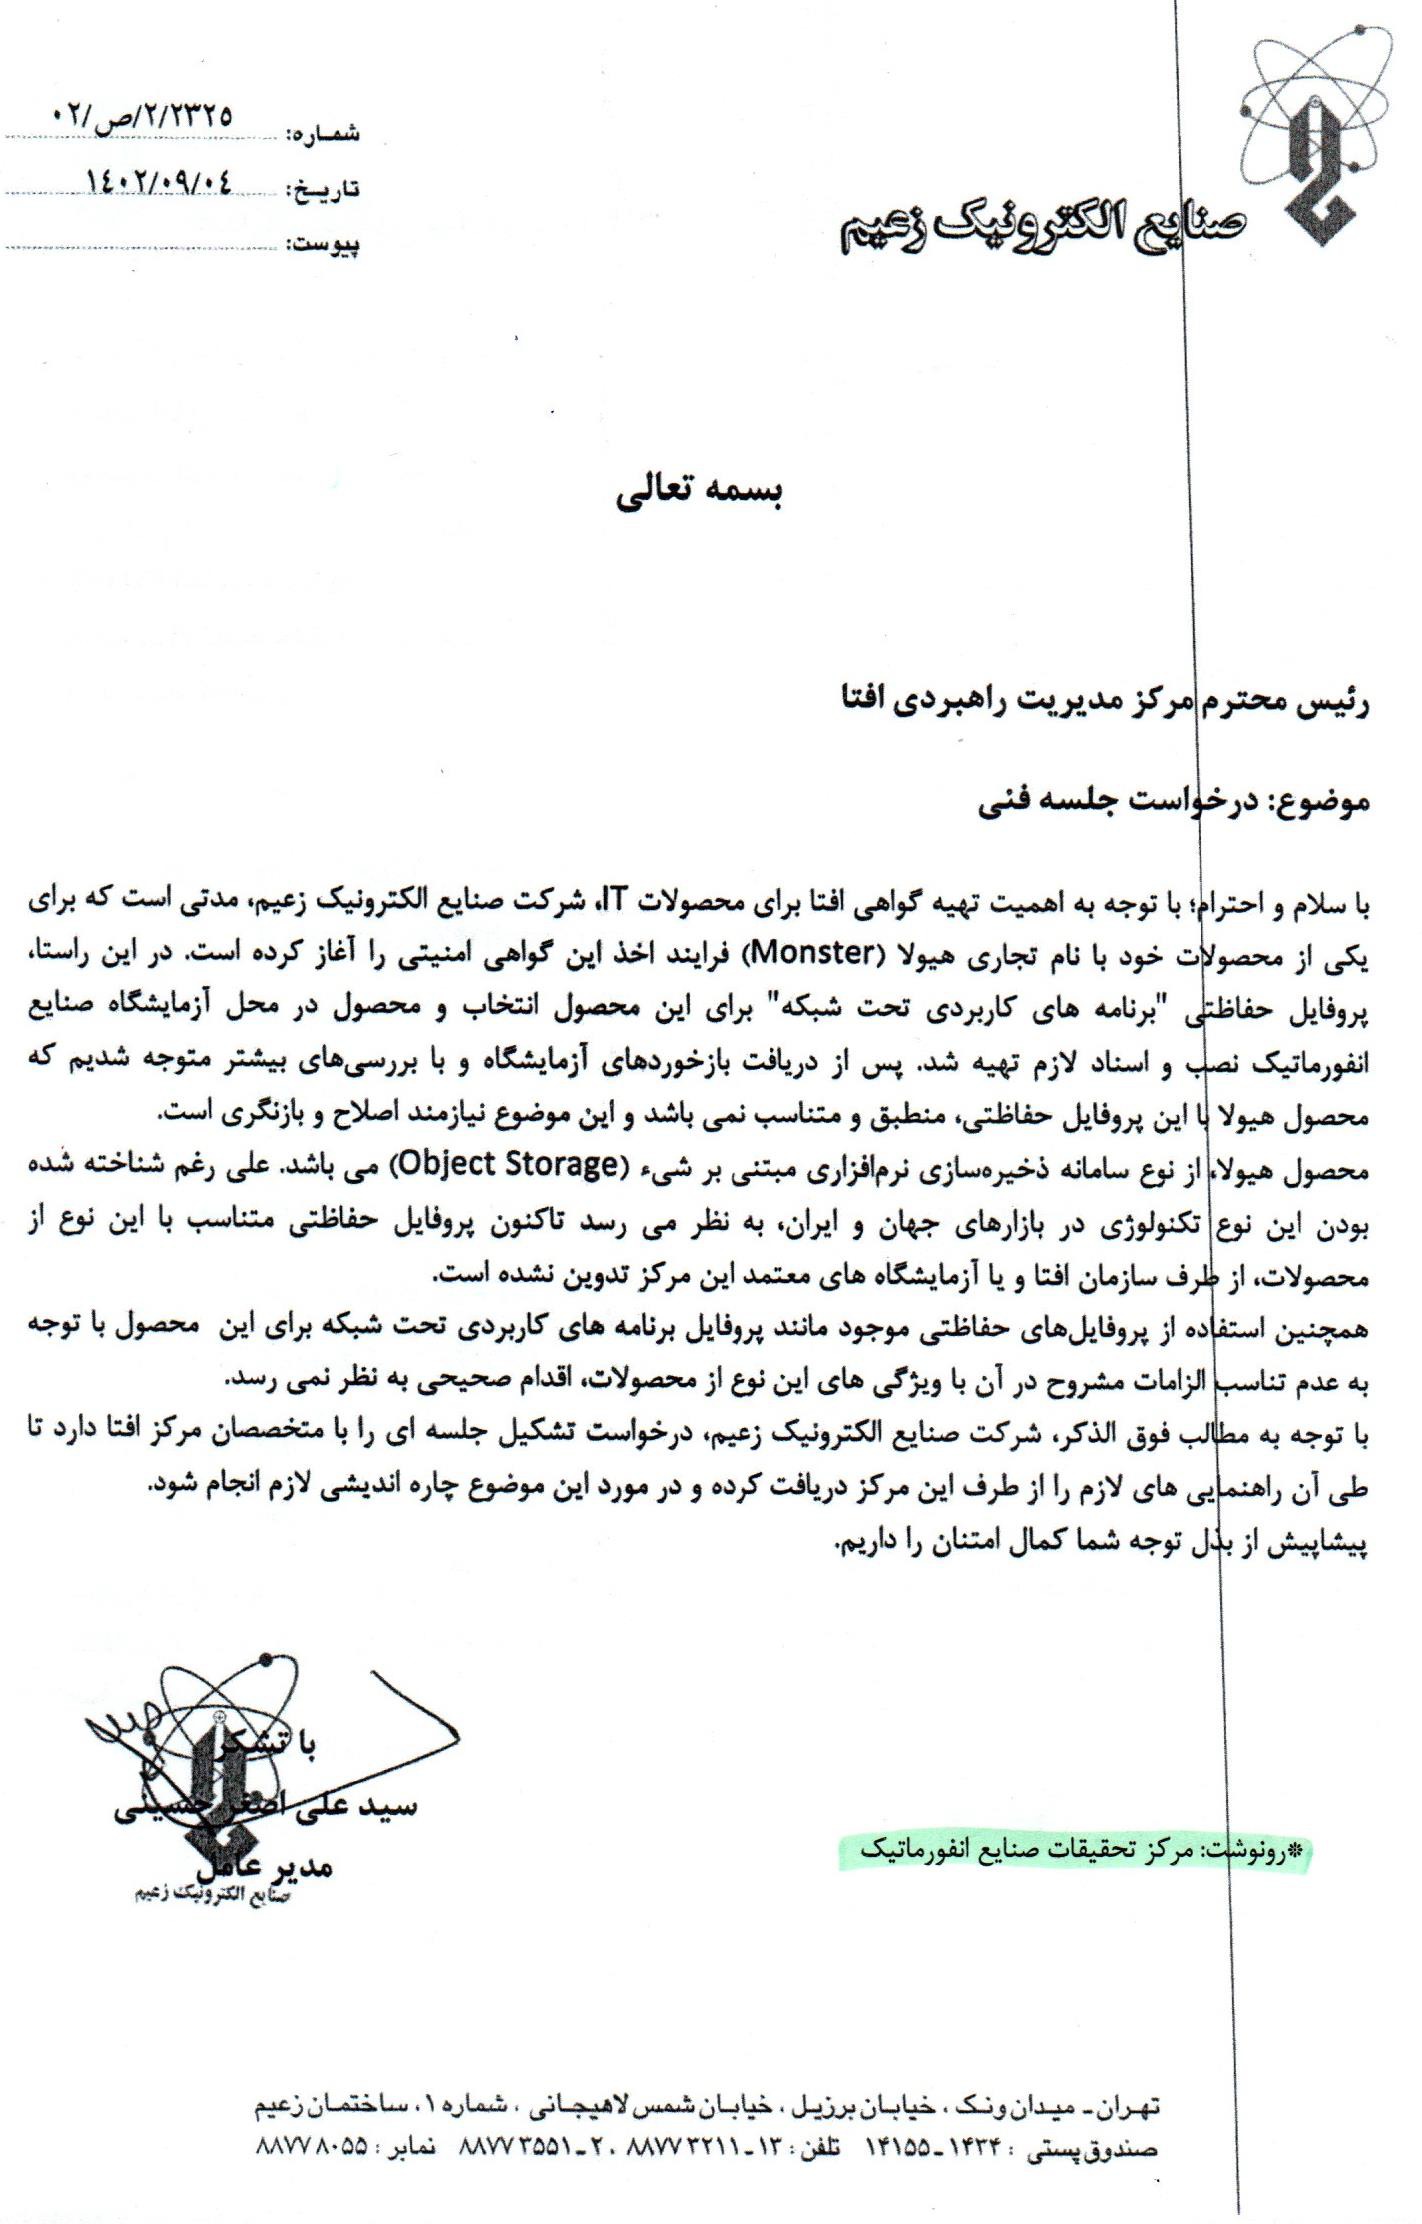 صنایع الکترونیک زعیم
شماره: ۰۲/ص/۲/۲۳۲۵
تاریخ: ۱٤۰۲/۰۹/۰٤
پیوست:
بسمه تعالی
رئیس محترم مرکز مدیریت راهبردی افتا
موضوع: درخواست جلسه فنی
با سلام و احترام؛ با توجه به اهمیت تهیه گواهی افتا برای محصولات IT، شرکت صنایع الکترونیک زعیم، مدتی است که برای
یکی از محصولات خود با نام تجاری هیولا (Monster) فرایند اخذ این گواهی امنیتی را آغاز کرده است. در این راستا،
پروفایل حفاظتی "برنامه های کاربردی تحت شبکه" برای این محصول انتخاب و محصول در محل آزمایشگاه صنایع
انفورماتیک نصب و اسناد لازم تهیه شد. پس از دریافت بازخوردهای آزمایشگاه و با بررسی‌های بیشتر متوجه شدیم که
محصول هیولا با این پروفایل حفاظتی، منطبق و متناسب نمی باشد و این موضوع نیازمند اصلاح و بازنگری است.
محصول هیولا، از نوع سامانه ذخیره‌سازی نرم‌افزاری مبتنی بر شیء (Object Storage) می باشد. علی رغم شناخته شده
بودن این نوع تکنولوژی در بازارهای جهان و ایران، به نظر می رسد تاکنون پروفایل حفاظتی متناسب با این نوع از
محصولات، از طرف سازمان افتا و یا آزمایشگاه های معتمد این مرکز تدوین نشده است.
همچنین استفاده از پروفایل‌های حفاظتی موجود مانند پروفایل برنامه های کاربردی تحت شبکه برای این محصول با توجه
به عدم تناسب الزامات مشروح در آن با ویژگی های این نوع از محصولات، اقدام صحیحی به نظر نمی رسد.
با توجه به مطالب فوق الذکر، شرکت صنایع الکترونیک زعیم، درخواست تشکیل جلسه ای را با متخصصان مرکز افتا دارد تا
طی آن راهنمایی های لازم را از طرف این مرکز دریافت کرده و در مورد این موضوع چاره اندیشی لازم انجام شود.
پیشاپیش از بذل توجه شما کمال امتنان را داریم.
با تشکر
سید علی اصغر حسینی
مدیر عامل
صنایع الکترونیک زعیم
*رونوشت: مرکز تحقیقات صنایع انفورماتیک
تهران - میدان ونک ، خیابان برزیل ، خیابان شمس لاهیجانی ، شماره ۱ ، ساختمان زعیم
صندوق پستی : ۱۴۳۴-۱۴۱۵۵ تلفن : ۱۳-۸۸۷۷۳۲۱۱ ، ۲-۸۸۷۷۳۵۵۱ نمابر : ۸۸۷۷۸۰۵۵